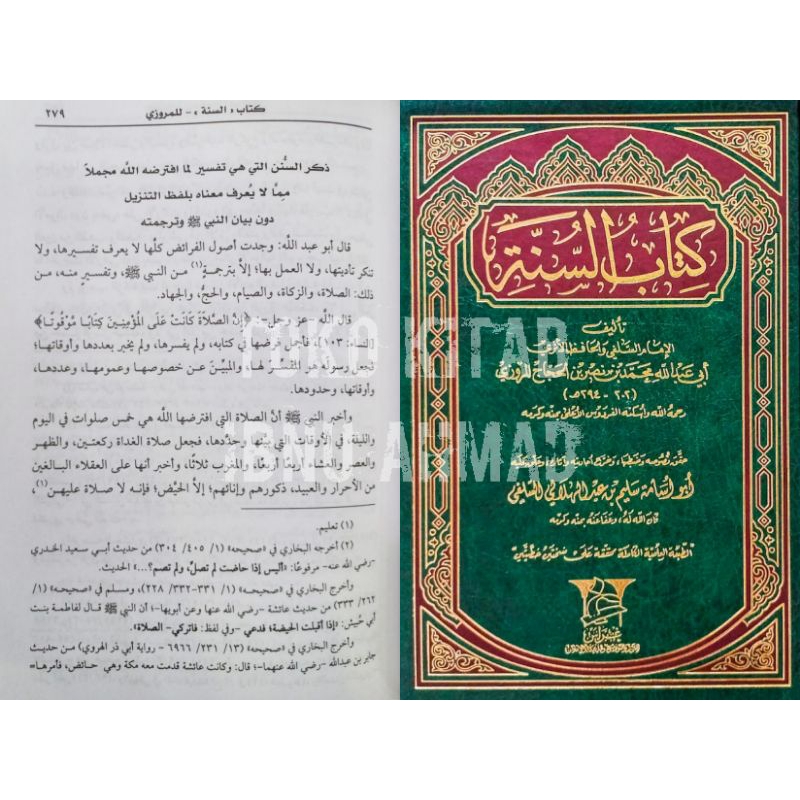 كتاب «السنة» - للمروزي
٢٧٩
ذكر السُّنن التي هي تفسير لما افترضه الله مجملاً
مِمَّا لا يُعرف معناه بلفظ التنزيل
دون بيان النبي ﷺ وترجمته
قال أبو عبد الله: وجدت أصول الفرائض كلَّها لا يعرف تفسيرها، ولا
تنكر تأديتها، ولا العمل بها؛ إلاَّ بترجمةٍ(١) من النبي ﷺ، وتفسيرٍ منه، من
ذلك: الصلاة، والزكاة، والصيام، والحجُّ، والجهاد.
قال الله -عز وجل-: ﴿إِنَّ الصَّلاَةَ كَانَتْ عَلَى الْمُؤْمِنِينَ كِتَابًا مَوْقُوتًا﴾
[النساء: ١٠٣]، فأجمل فرضها في كتابه، ولم يفسرها، ولم يخبر بعددها وأوقاتها؛
فجعل رسوله هو المفسِّر لها، والمبيِّن عن خصوصها وعمومها، وعددها،
وأوقاتها، وحدودها.
وأخبر النبي ﷺ أنَّ الصلاة التي افترضها الله هي خمس صلوات في اليوم
والليلة، في الأوقات التي بيَّنها وحدَّدها، فجعل صلاة الغداة ركعتين، والظهر
والعصر والعشاء أربعًا أربعًا، والمغرب ثلاثًا، وأخبر أنها على العقلاء البالغين
من الأحرار والعبيد، ذكورهم وإناثهم؛ إلاَّ الحيَّض؛ فإنه لا صلاة عليهن
(١) تعليم.
(٢) أخرجه البخاري في «صحيحه» (١/ ٤٠٥/ ٣٠٤) من حديث أبي سعيد الخدري
-رضي الله عنه- مرفوعًا: «أليس إذا حاضت لم تصلِّ، ولم تصم؟...» الحديث.
وأخرج البخاري في «صحيحه» (١/ ٣٣١-٣٣٢/ ٢٢٨)، ومسلم في «صحيحه» (١/
٢٦٢/ ٣٣٣) من حديث عائشة -رضي الله عنها وعن أبويها-: أن النبي ﷺ قال لفاطمة بنت
أبي حُبيش: «إذا أقبلت الحيضة؛ فدعي -وفي لفظ: فاتركي- الصلاة».
وأخرج البخاري في «صحيحه» (١٣/ ٢٣١/ ٦٩٦٦ - رواية أبي ذر الهروي) من حديث
جابر بن عبدالله -رضي الله عنهما-؛ قال: وكانت عائشة قدمت معه مكة وهي حائض، فأمرها=
كِتَابُ السُّنَّةِ
تأليف
الإمام السلفي والحافظ الأثري
أبي عبد الله محمد بن نصر بن الحجاج المروزي
(٢٠٢ - ٢٩٤ هـ)
رحمه الله وأسكنه الفردوس الأعلى بمنه وكرمه
حقق نصوصه وضبطها، وخرج أحاديثه وآثاره، وعلق عليه
أبو أسامة سليم بن عيد الهلالي السلفي
كان الله له، وعفا عنه بمنه وكرمه
الطبعة العلمية الكاملة محققة على نسختين خطيتين
غراس
TOKO KITAB
IBNU AHMAD